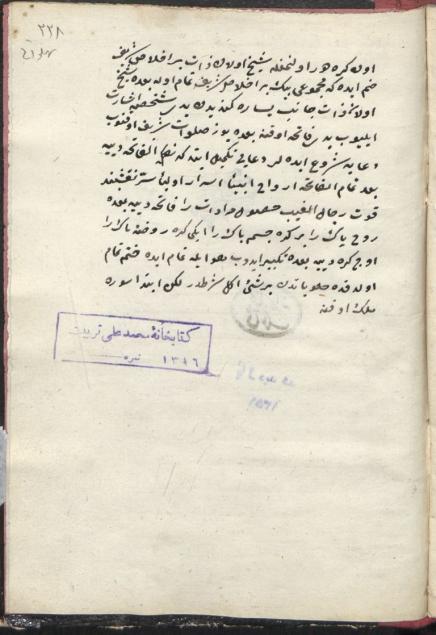 ۲۲۸
اون کره هر اولنجغله شیخ اولان ذات بر اخلاص شریف
ختم ایده که مجموعی بیک بر اخلاص شریف تمام اوله بعده شیخ
اولان ذات جانب یساره کندیدن بر شخصه اشارت
ایلیوب بر فاتحه اوقنه بعده یوز صلوات شریف اوقنوب
دعایه شروع ایده لر دعایی تکمیل ایتدکه الفاتحه دییه
بعد تمام الفاتحه ارواح انبیا اسرار اولیا سر نقشبند
قوت رجال الغیب حصول مرادات را فاتحه دییه بعده
روح پاک را بر کره جسم پاک را ایکی کره روضه پاک را
اوچ کره دییه بعده تکبیر ایدوب هو ایله تمام ایده ختم تمام
اولدقده حلویاتدن بر شیئ اکل شرطدر لکن ابتدا سوره
ملک اوقنه
کتابخانهٔ محمد علی تربیت
۱۳۱۶ نمره